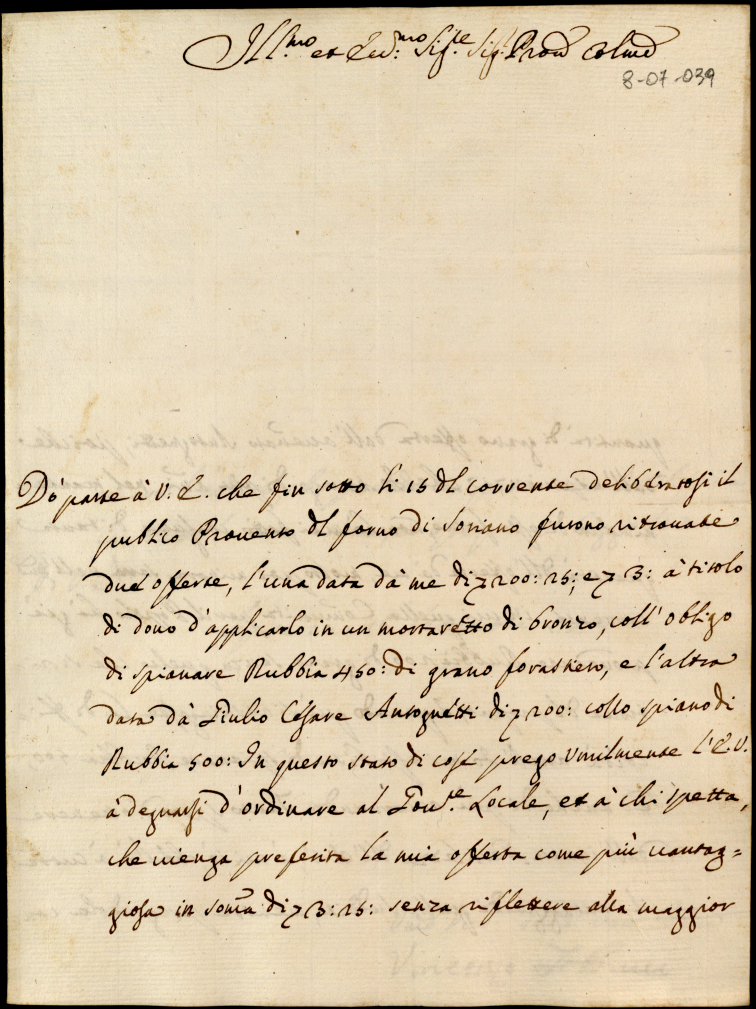 Ill.mo et Rev.mo Sig.re Sig.r Pron Colmo
8-07-039
Dò parte à V. E. che fin sotto li 15 del corrente deliberatosi il
publico Provento del forno di Soriano furono ritrovate
due offerte, l'una data dà me di 200: 25; e 3: à titolo
di dono d'applicarlo in un mortaretto di bronzo, coll'obligo
di spianare Rubbia 450: di grano forastiero, e l'altra
data dà Giulio Cesare Antognetti di 200: collo spiano di
Rubbia 500: In questo stato di cose prego Umilmente l'E.V.
à degnarsi d'ordinare al Gov.re Locale, et à chi spetta,
che vienga preferita la mia offerta come più vantag=
giosa in soma di 3: 25: senza riflettere alla maggior